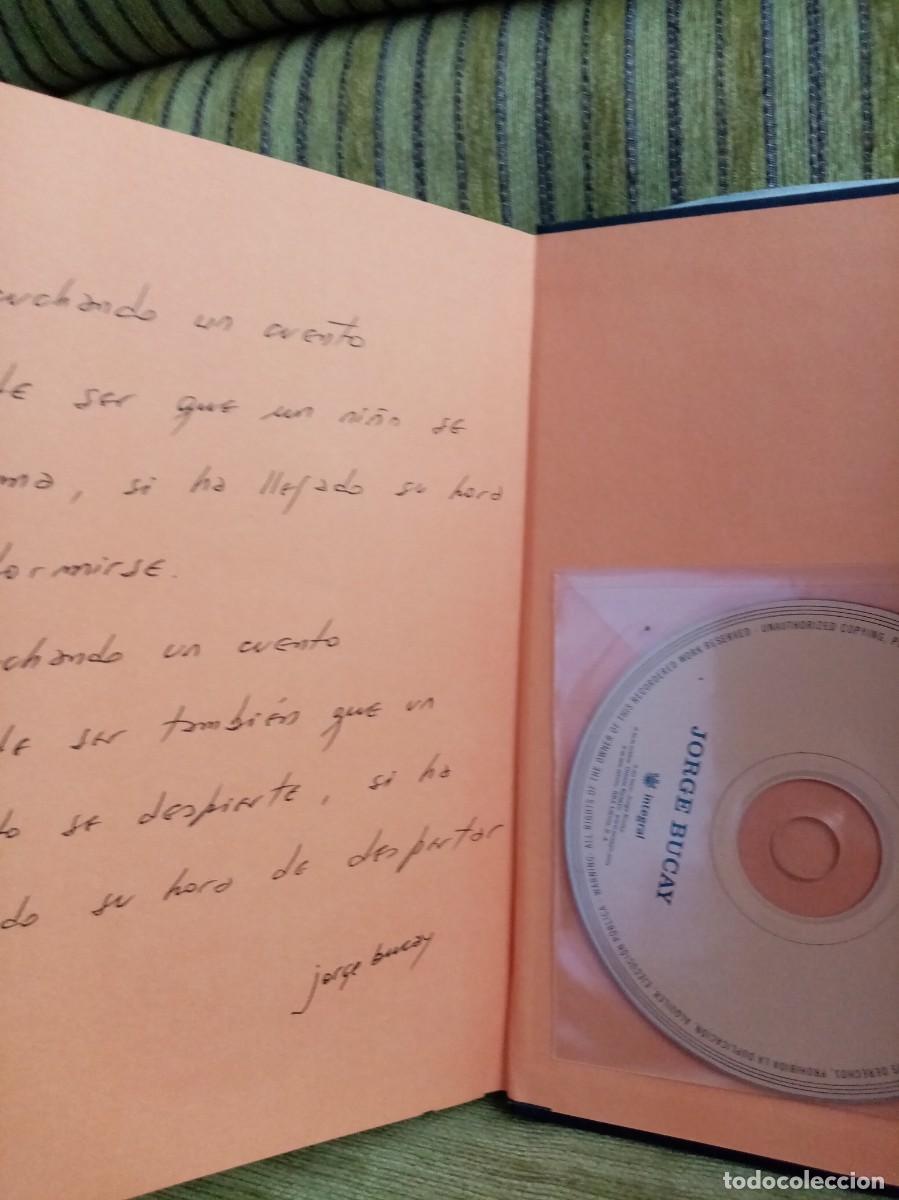 uchando un cuento
de ser que un niño se
ma, si ha llegado su hora
dormirse.
chando un cuento
de ser también que un
to se despierte, si ha
do su hora de despertar
jorge bucay
JORGE BUCAY
integral
WARNING: ALL RIGHTS OF THE OWNER OF THIS RECORDERED WORK RESERVED · UNAUTHORIZED COPYING, P
S DERECHOS, PROHIBIDA LA DUPLICACIÓN, ALQUILER, EJECUCIÓN PÚBLICA
todocoleccion